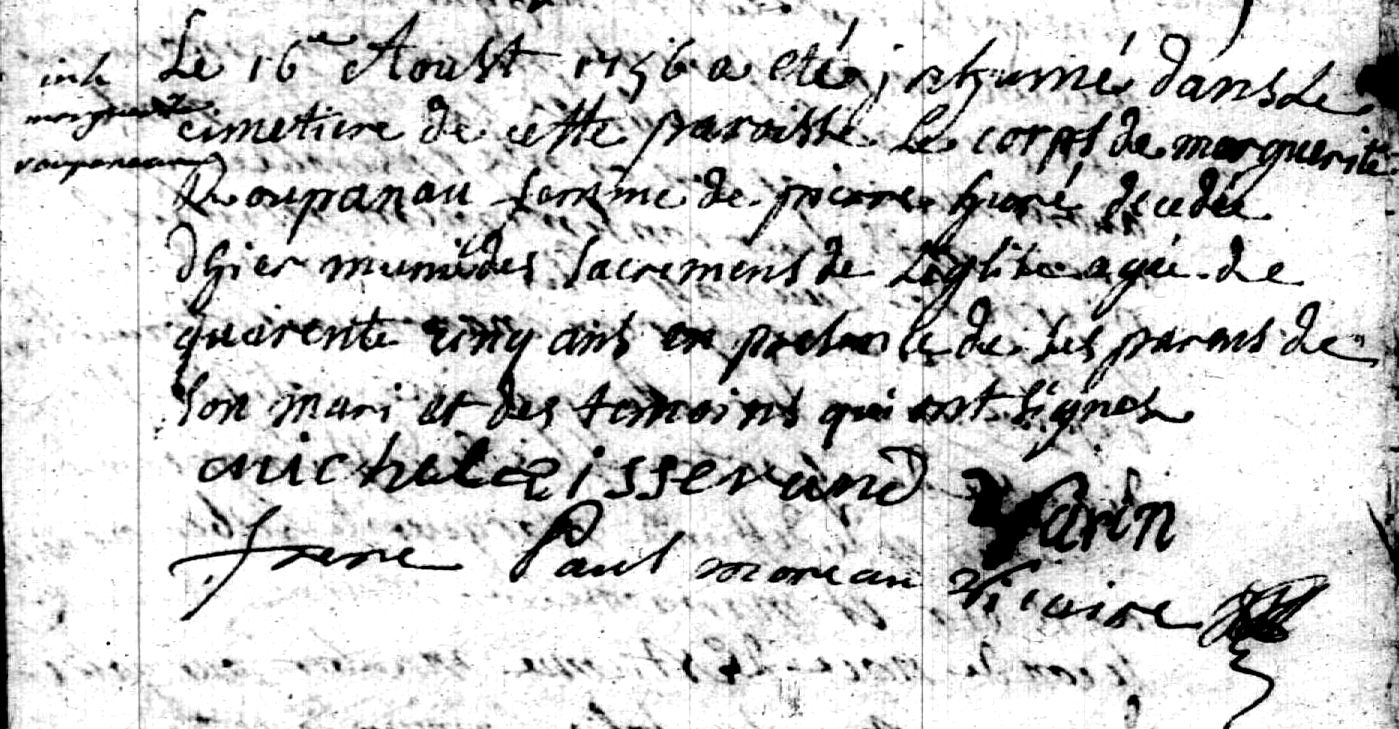 inh
marguerite
roupaneau
Le 16e Aoust 1756 a eté inhumé dans Le
cimetiere de cette paroisse Le corps de marguerite
Roupanau femme de pierre huré decedée
dhier munie des sacremens de Leglise agée de
quarente cinq ans en presence de ses parens de
son mari et des temoins qui ont signes
michel tisserand Parin
frere Paul moreau Vicaire